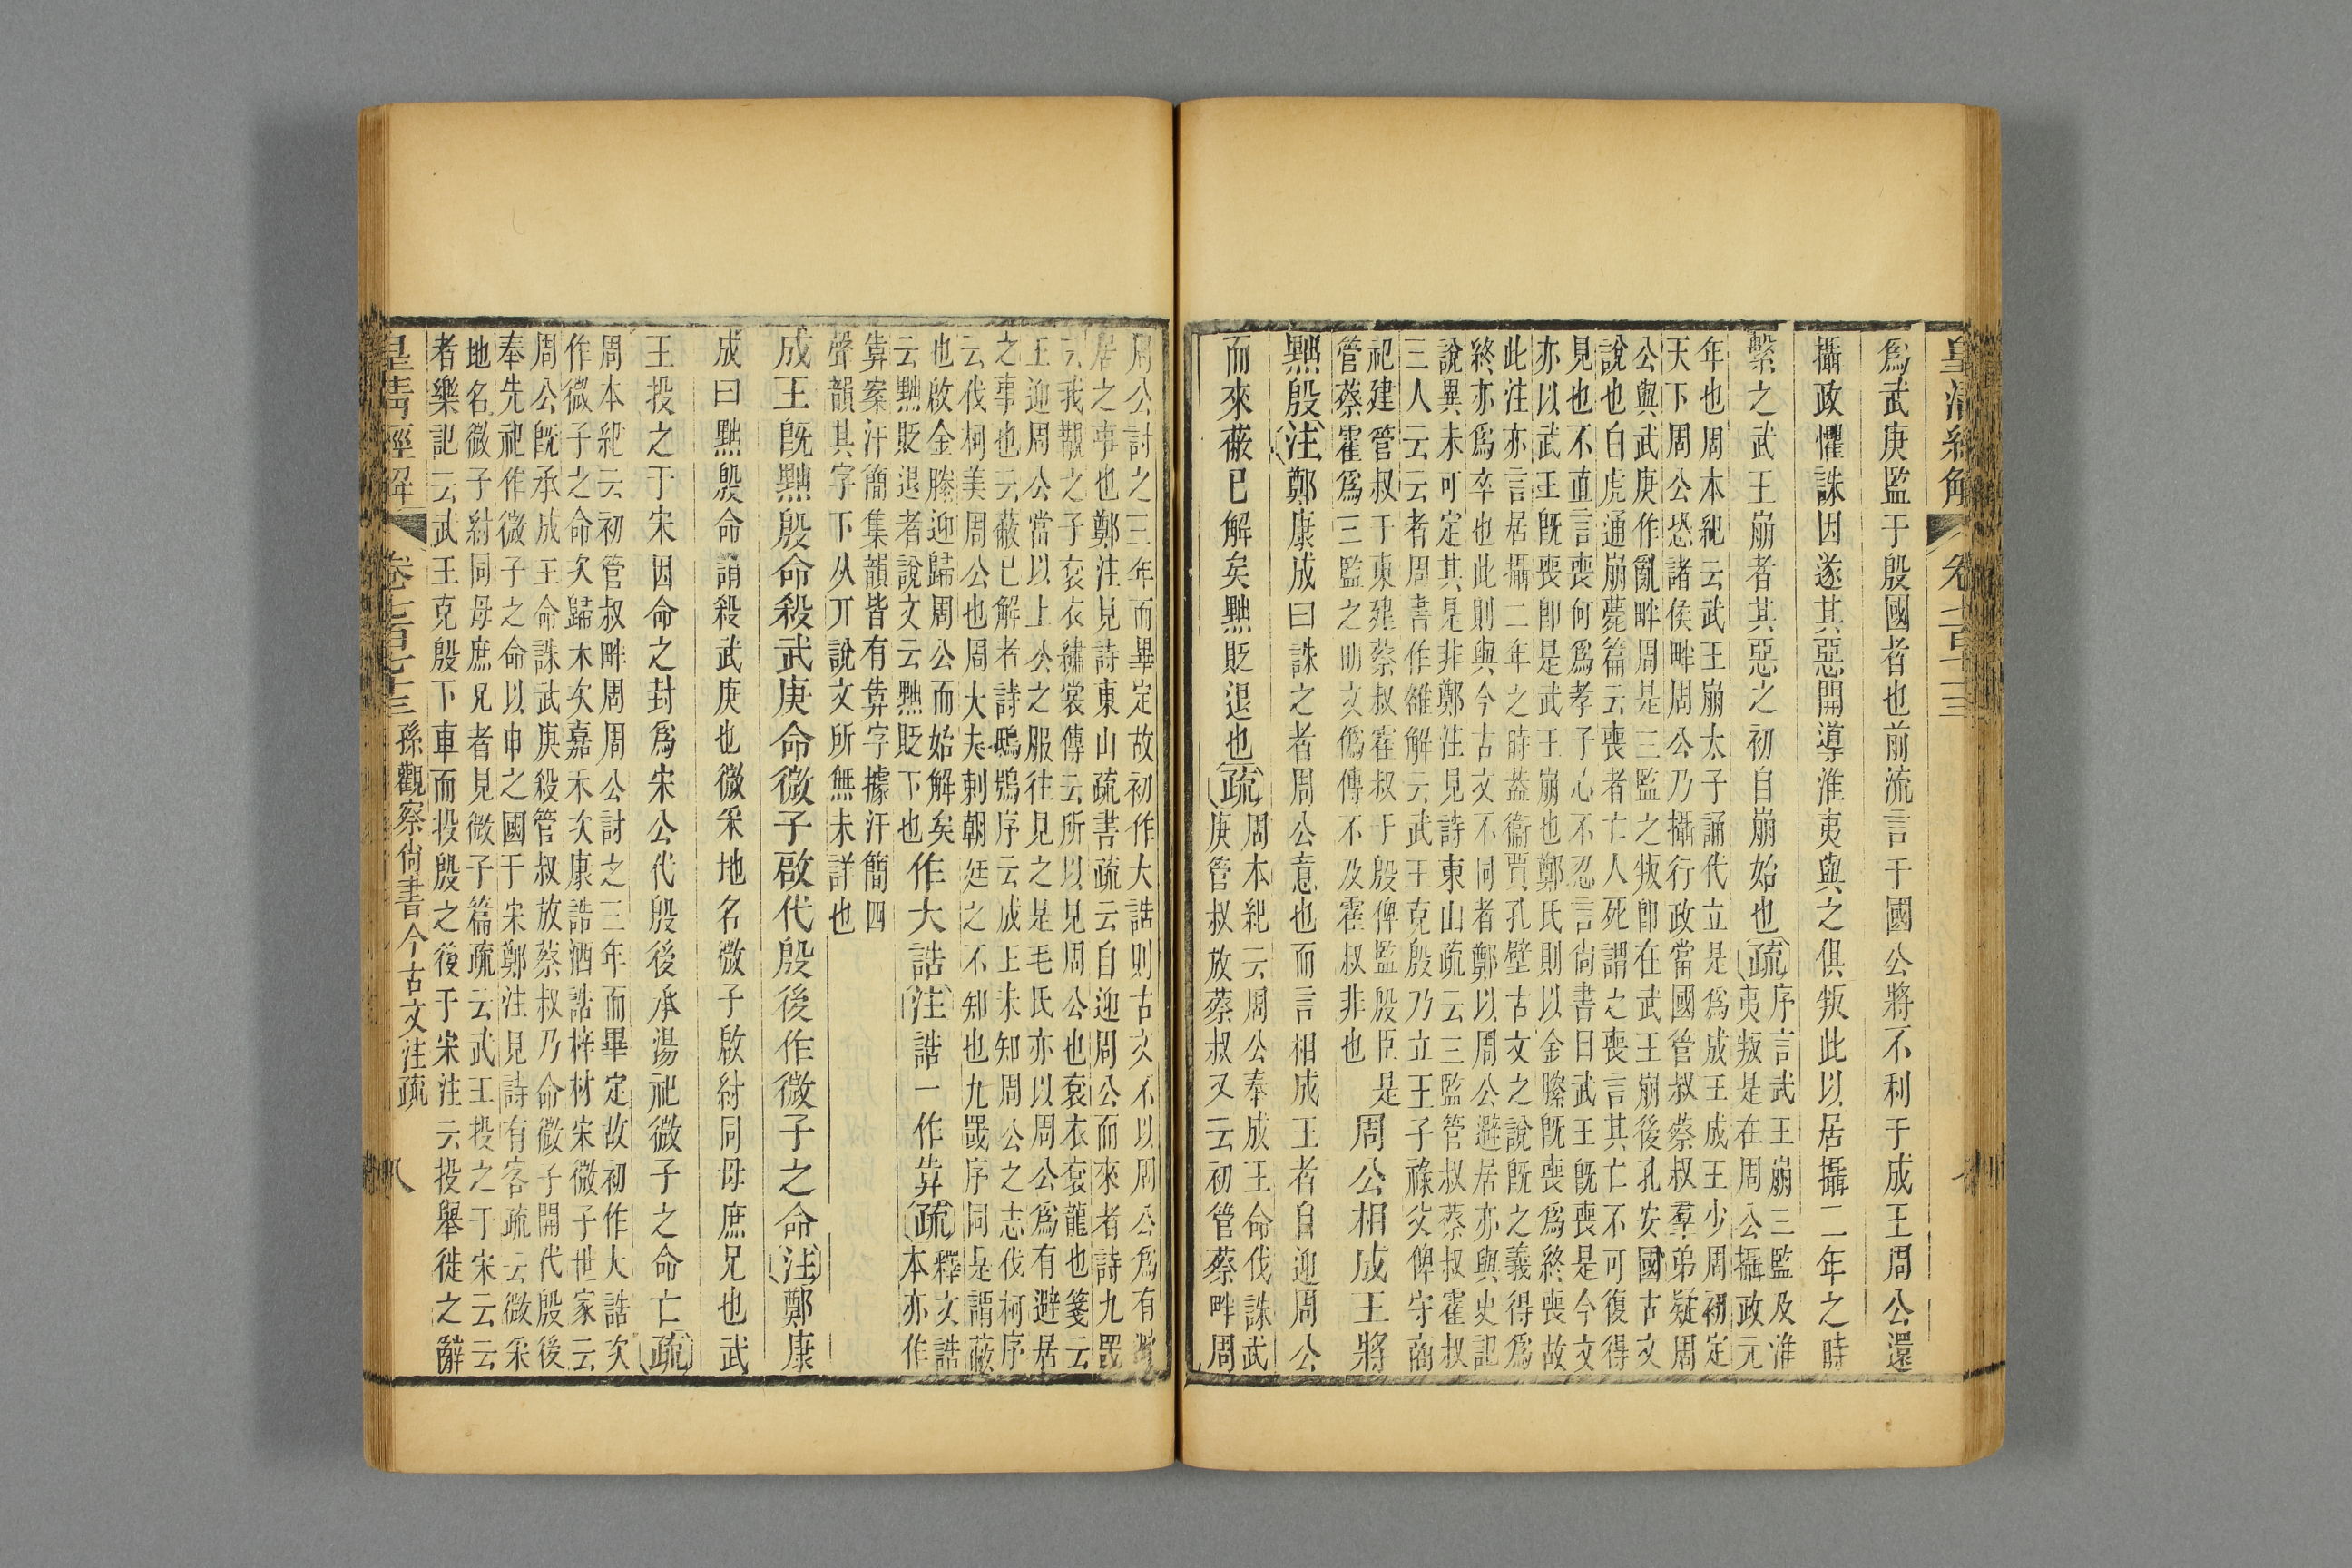 爲武庚監于殷國者也前流言于國公將不利于成王周公還
攝政懼誅因遂其惡開導淮夷與之俱叛此以居攝二年之時
繫之武王崩者其惡之初自崩始也疏
序言武王崩三監及淮
夷叛是在周公攝政元
年也周本紀云武王崩太子誦代立是爲成王成王少周初定
天下周公恐諸侯畔周公乃攝行政當國管叔蔡叔羣弟疑周
公與武庚作亂畔周是三監之叛卽在武王崩後孔安國古文
說也白虎通崩薨篇云喪者亡人死謂之喪言其亡不可復得
見也不直言喪何爲孝子心不忍言尙書曰武王旣喪是今文
亦以武王旣喪卽是武王崩也鄭氏則以金縢旣喪爲終喪故
此注亦言居攝二年之時葢衞賈孔壁古文之說旣之義得爲
終亦爲卒也此則與今古文不同者鄭以周公避居亦與史記
說異未可定其是非鄭注見詩東山疏云三監管叔蔡叔霍叔
三人云云者周書作雒解云武王克殷乃立王子祿父俾守商
祀建管叔于東建蔡叔霍叔于殷俾監殷臣是
管蔡霍爲三監之明文僞傳不及霍叔非也
周公相成王將
黜殷注鄭康成曰誅之者周公意也而言相成王者自迎周公
而來蔽已解矣黜貶退也疏
周本紀云周公奉成王命伐誅武
庚管叔放蔡叔又云初管蔡畔周
周公討之三年而畢定故初作大誥則古文不以周公爲有避
居之事也鄭注見詩東山疏書疏云自迎周公而來者詩九罭
云我覯之子衮衣繡裳傳云所以見周公也衮衣衮龍也箋云
王迎周公當以上公之服往見之是毛氏亦以周公爲有避居
之事也云蔽已解者詩鴟鴞序云成王未知周公之志伐柯序
云伐柯美周公也周大夫刺朝廷之不知也九罭序同是謂蔽
也啟金縢迎歸周公而始解矣
云黜貶退者說文云黜貶下也
作大誥注誥一作𢍎疏
釋文誥
本亦作
𢍎案汗簡集韻皆有𢍎字據汗簡四
聲韻其字下从丌說文所無未詳也
成王旣黜殷命殺武庚命微子啟代殷後作微子之命注鄭康
成曰黜殷命謂殺武庚也微采地名微子啟紂同母庶兄也武
王投之于宋因命之封爲宋公代殷後承湯祀微子之命亡疏
周本紀云初管叔畔周周公討之三年而畢定故初作大誥次
作微子之命次歸禾次嘉禾次康誥酒誥梓材宋微子世家云
周公旣承成王命誅武庚殺管叔放蔡叔乃命微子開代殷後
奉先祀作微子之命以申之國于宋鄭注見詩有客疏云微采
地名微子紂同母庶兄者見微子篇疏云武王投之于宋云云
者樂記云武王克殷下車而投殷之後于宋注云投舉徙之辭
皇淸經解 卷七百七十三 孫觀察尙書今古文注疏 八